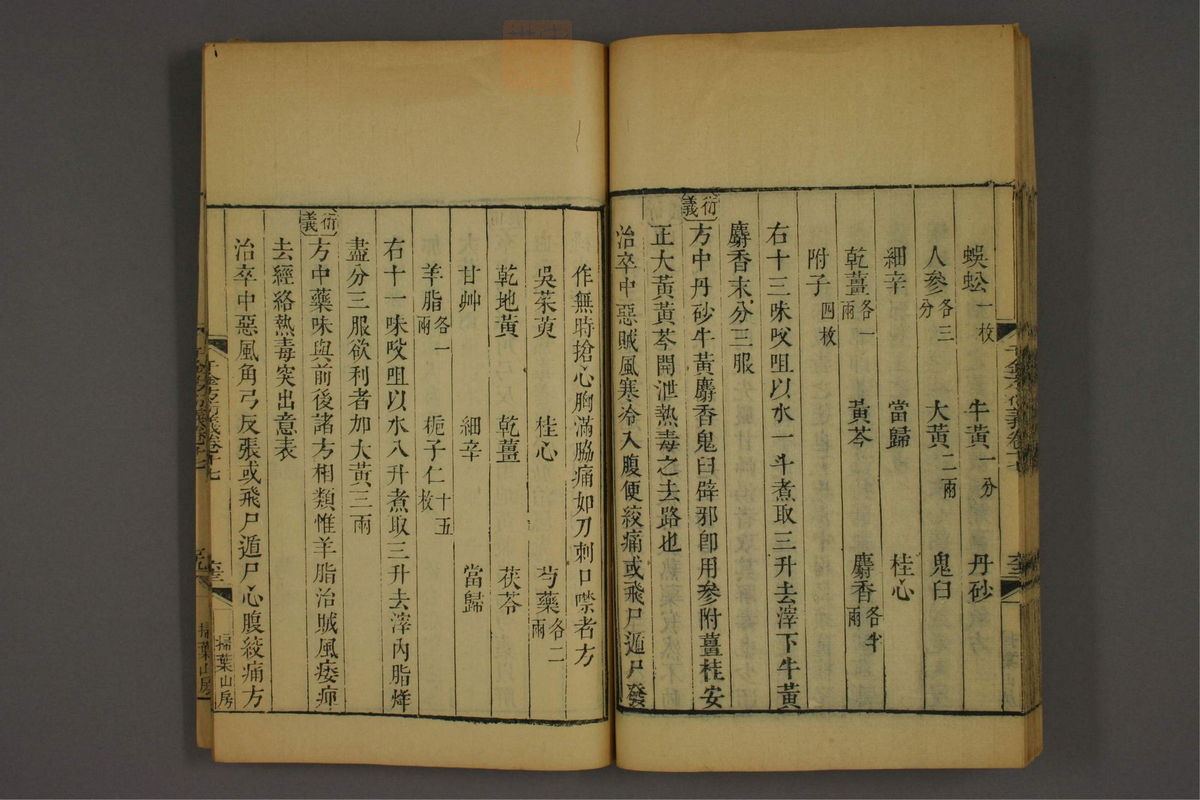 蜈蚣一枚 牛黃一分 丹砂
人參各三分 大黃二兩 鬼臼
細辛 當歸 桂心
乾薑各一兩 黃芩 麝香各半兩
附子四枚
右十三味㕮咀以水一斗煮取三升去滓下牛黃
麝香末分三服
衍義
方中丹砂牛黃麝香鬼臼辟邪卽用參附薑桂安
正大黃黃芩開泄熱毒之去路也
治卒中惡賊風寒冷入腹便絞痛或飛尸遁尸發
作無時搶心胸滿脇痛如刀刺口噤者方
吳茱萸 桂心 芍藥各二兩
乾地黃 乾薑 茯苓
甘艸 細辛 當歸
羊脂各一兩 梔子仁十五枚
右十一味㕮咀以水八升煮取三升去滓內脂烊
盡分三服欲利者加大黃三兩
衍義
方中藥味與前後諸方相類惟羊脂治賊風痿痹
去經絡熱毒突出意表
治卒中惡風角弓反張或飛尸遁尸心腹絞痛方
千金方衍義卷十七
掃葉山房